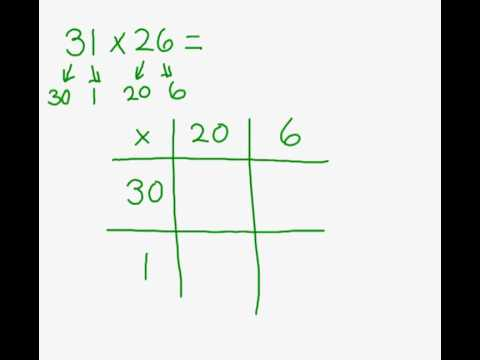 31 x 26 =
30 1 20 6
x 20 6
30
1